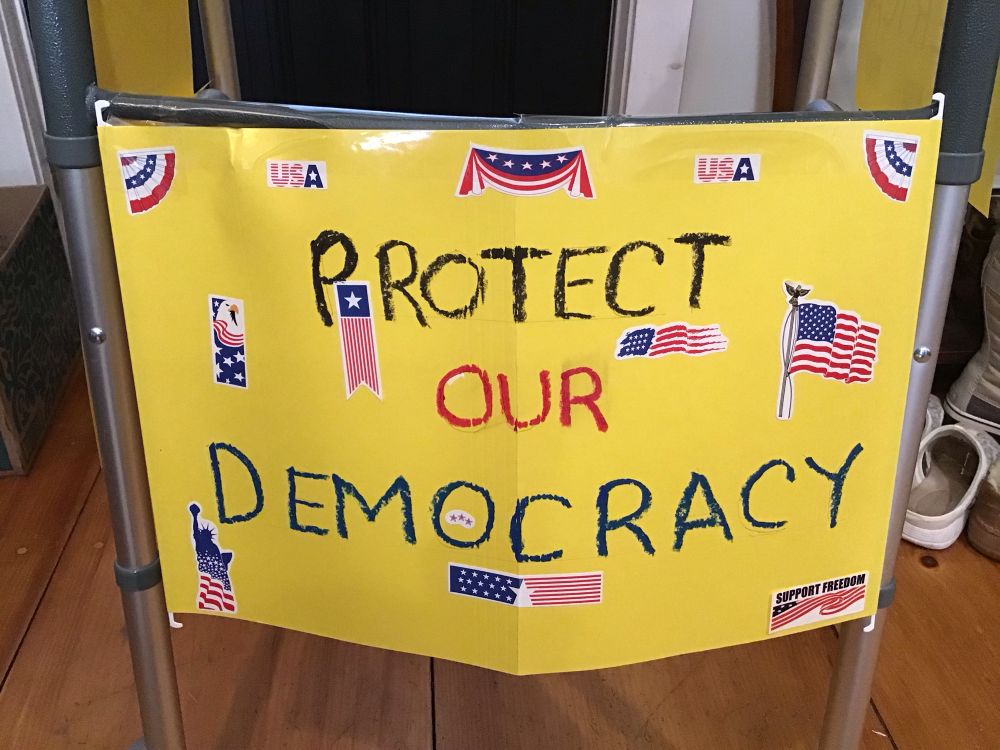 USA USA
PROTECT
OUR
DEMOCRACY
SUPPORT FREEDOM